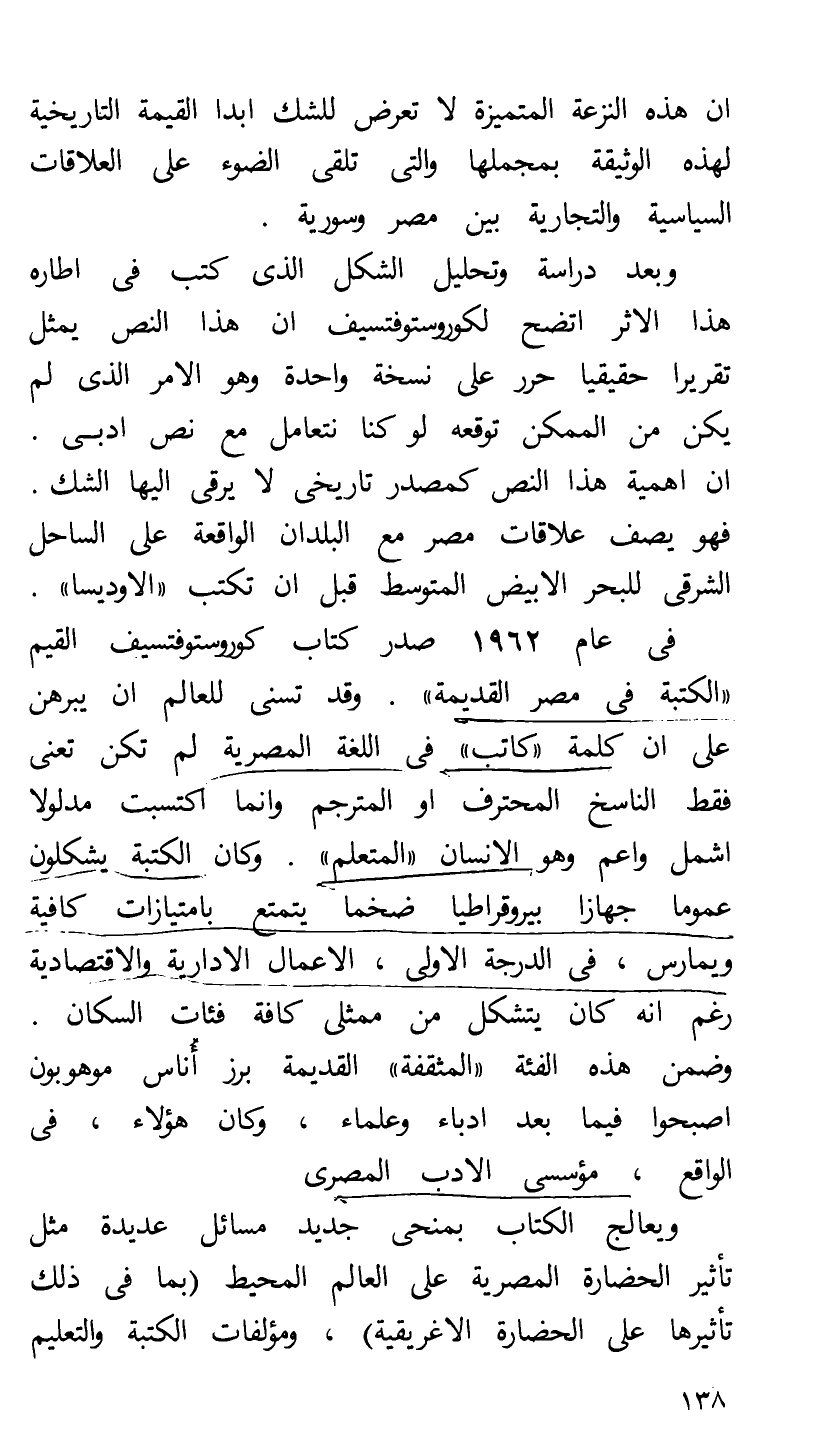 ان هذه النزعة المتميزة لا تعرض للشك ابدا القيمة التاريخية
لهذه الوثيقة بمجملها والتى تلقى الضوء على العلاقات
السياسية والتجارية بين مصر وسورية .
وبعد دراسة وتحليل الشكل الذى كتب فى اطاره
هذا الاثر اتضح لكوروستوفتسيف ان هذا النص يمثل
تقريرا حقيقيا حرر على نسخة واحدة وهو الامر الذى لم
يكن من الممكن توقعه لو كنا نتعامل مع نص ادبـى .
ان اهمية هذا النص كمصدر تاريخى لا يرقى اليها الشك .
فهو يصف علاقات مصر مع البلدان الواقعة على الساحل
الشرقى للبحر الابيض المتوسط قبل ان تكتب «الاوديسا» .
فى عام ١٩٦٢ صدر كتاب كوروستوفتسيف القيم
«الكتبة فى مصر القديمة» . وقد تسنى للعالم ان يبرهن
على ان كلمة «كاتب» فى اللغة المصرية لم تكن تعنى
فقط الناسخ المحترف او المترجم وانما اكتسبت مدلولا
اشمل واعم وهو الانسان «المتعلم» . وكان الكتبة يشكلون
عموما جهازا بيروقراطيا ضخما يتمتع بامتيازات كافية
ويمارس ، فى الدرجة الاولى ، الاعمال الادارية والاقتصادية
رغم انه كان يتشكل من ممثلى كافة فئات السكان .
وضمن هذه الفئة «المثقفة» القديمة برز أُناس موهوبون
اصبحوا فيما بعد ادباء وعلماء ، وكان هؤلاء ، فى
الواقع ، مؤسسى الادب المصرى
ويعالج الكتاب بمنحى جديد مسائل عديدة مثل
تأثير الحضارة المصرية على العالم المحيط (بما فى ذلك
تأثيرها على الحضارة الاغريقية) ، ومؤلفات الكتبة والتعليم
١٣٨